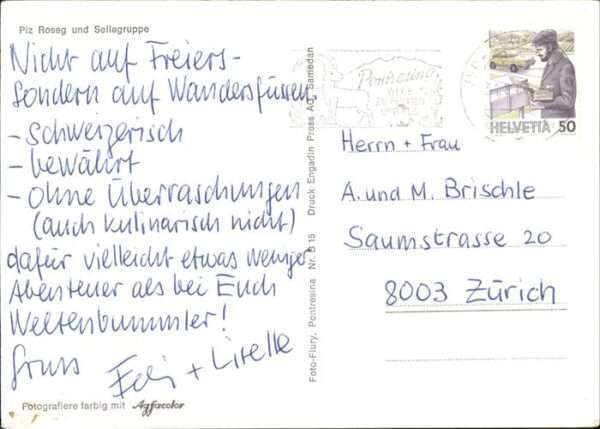 Piz Roseg und Sellagruppe
Nicht auf Freiers-
sondern auf Wandersfüssen
- schweizerisch
- bewährt
- ohne Überraschungen
(auch kulinarisch nicht)
dafür vielleicht etwas weniger
Abenteuer als bei Euch
Weltenbummler!
Gruss
+ Liselle
Fotografiere farbig mit Agfacolor
Foto-Flury, Pontresina Nr. B 15 Druck Engadin Press AG, Samedan
Pontresina
HELVETIA 50
Herrn + Frau
A. und M. Brischle
Saumstrasse 20
8003 Zürich